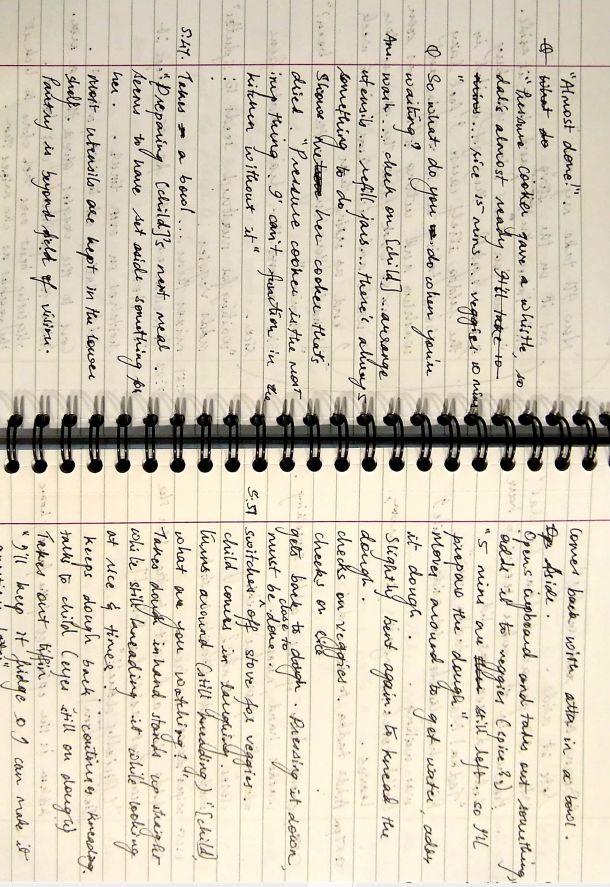 "Almost done!"
"Pressure cooker gave a whistle, so
dal's almost ready. It'll take 10
mins... rice 15 mins... veggies 10 mins
".
Q What do
Q So what do you do when you're
waiting?
Ans. wash... check on [child]... arrange
utensils... refill jars... there's always
something to do
Shows me her cooker that's
dried. "Pressure cooker is the most
imp thing. I can't function in the
kitchen without it"
5.47. Takes a bowl...
"Preparing [child]'s next meal.
seems to have set aside something for
her.
Most utensils are kept in the lower
shelf.
Pantry is beyond field of vision.
Comes back with atta in a bowl.
Aside.
Opens cupboard and takes out something,
adds it to veggies (spice?)
"5 mins are still left... so I'll
prepare the dough"
Moves around to get water, adds
it dough.
Slightly bent again: to knead the
dough.
checks on veggies.
checks on
gets back to dough. Pressing it down,
must be close to done.
5.51 switches off stove for veggies.
child comes in laughing.
turns around (still kneading) "[child],
what are you watching?"
Takes dough in hand, stands up straighter
while still kneading it while looking
at rice & time.
keeps dough back, continues kneading.
talks to child (eyes still on dough)
Takes out tiffin
"I'll keep it fridge so I can make it